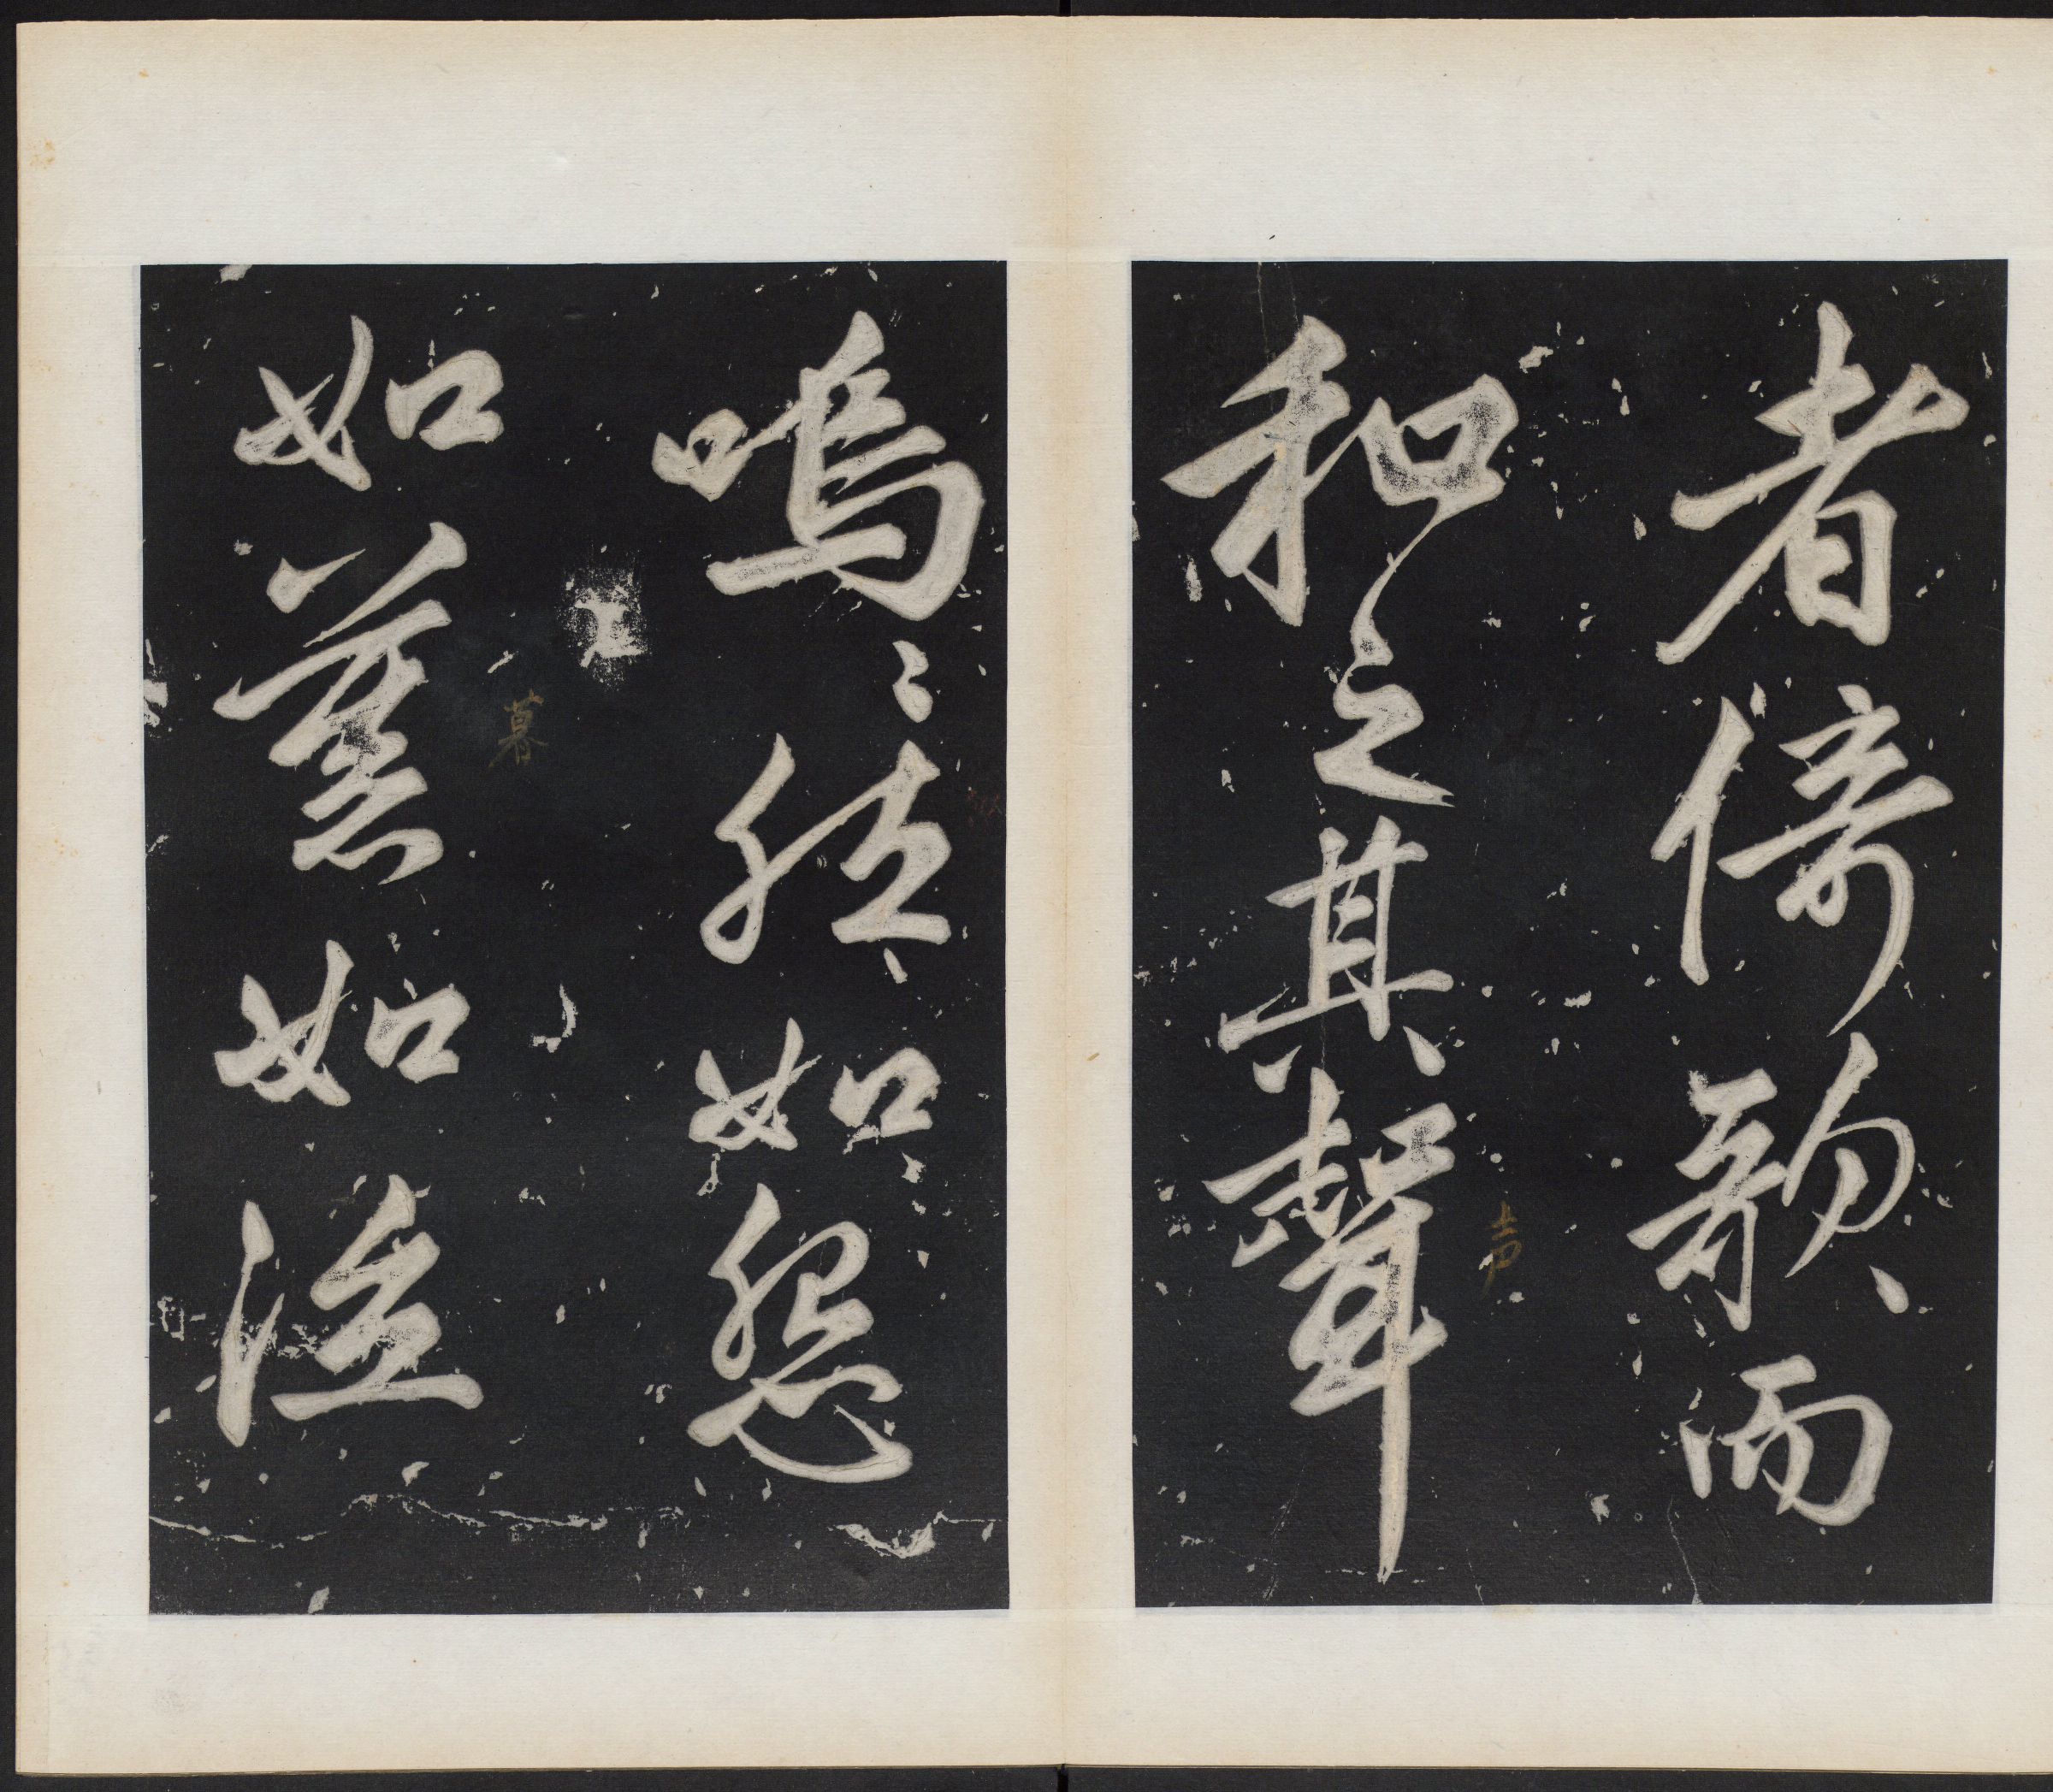 者倚歌而
和之其聲
声
嗚〻然如怨
如慕如泣
慕